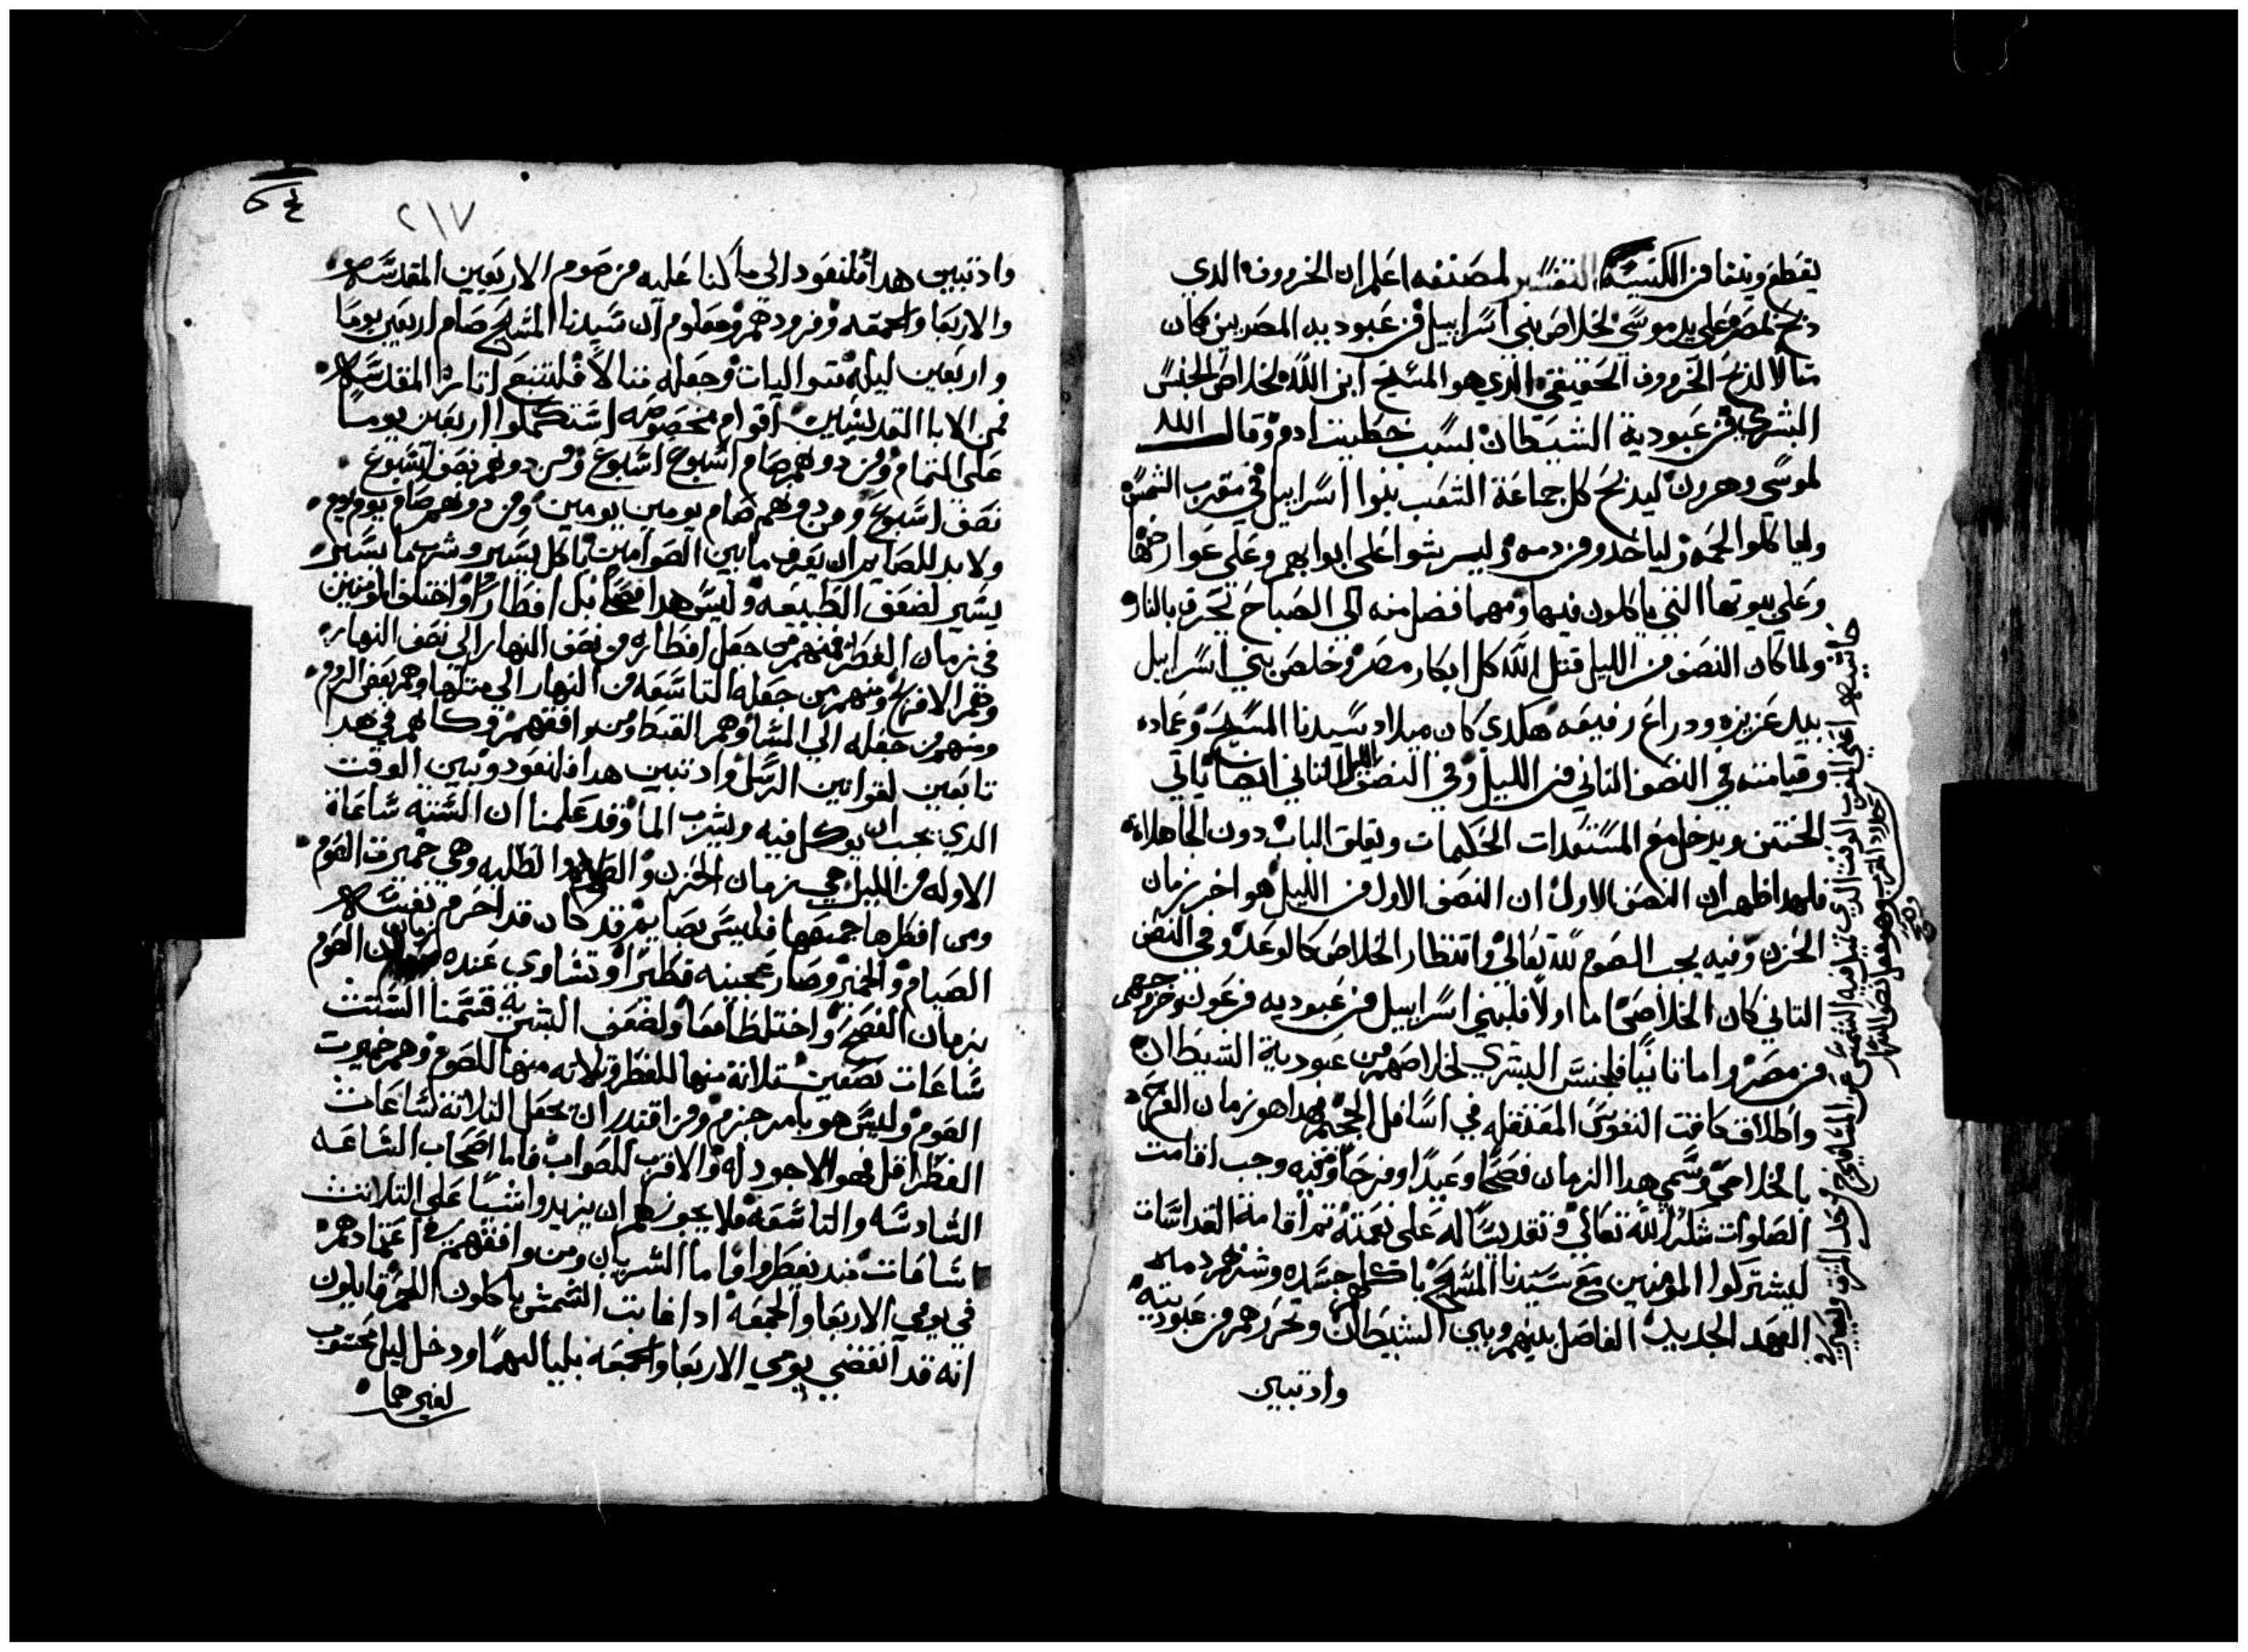 يقطع وينفا من الكنيسة التفسير لمصنفه اعلم ان الخروف الدي
دبح بمصر على يد موسي لخلاص بني اسراييل من عبوديه المصريين كان
متالا لدبح الخروف الحقيقي الدي هو المسيح ابن الله لخلاص الجنس
البشري من عبودية الشيطان بسبب خطييت ادم وقال الله
لموسي وهرون ليدبح كل جماعة الشعب بنوا اسراييل في مغرب الشمس
ولياكلوا لحمه ولياخدو من دمه وليرشوا على ابوابهم وعلى عوارضها
وعلي بيوتها التي ياكلون فيها ومهما فضل منه الي الصباح تحرق بالنار
ولما كان النصف من الليل قتل الله كل ابكار مصر وخلص بني اسراييل
بيد عزيزه ودراع رفيعه هكدي كان ميلاد سيدنا المسيح وعماده
وقيامته في النصف التاني من الليل وفي النصف التاني ايضا ياتي
الختن ويدخل مع المستعدات الحكيمات ويغلق الباب دون الجاهلات
فلهدا ظهر ان النصف الاول ان النصف الاول من الليل هو اخر زمان
الحزن وفيه يجب الصوم لله تعالي وانتظار الخلاص كالوعد وفي النصف
التاني كان الخلاص اما اولا فلبني اسراييل من عبوديه فرعون وخروجهم
من مصر واما تانيا فلجنس البشري لخلاصهم من عبودية الشيطان
واطلاق كافت النفوس المعتقله في اسافل الجحيم فهدا هو زمان الفرح
بالخلاص وسمي هدا الزمان فصحا وعيدا وفرحا وفيه وجب اقامت
الصلوات شكرا لله تعالي وتقديسا له على نعمته تم اقامة القداسات
ليشتركوا المومنين مع سيدنا المسيح باكلهم جسده وشربهم دمه
العهد الجديد الفاصل بينهم وبين الشيطان وتحررهم من عبوديته
وادتبين
٢١٧
وادتبين هدا فلنعود الي ما كنا عليه من صوم الاربعين المقدسه
والاربعا والجمعه ومعلوم ان سيدنا المسيح صام اربعين يوما
واربعين ليله متواليات وجعله متالا فلنتبع اتاره المقدسه
فمن الابا القديسين اقوام مخصوصه استكملوا اربعين يوما
على التمام ومن دونهم صام اسبوع اسبوع ومن دونهم نصف اسبوع
نصف اسبوع ومن دونهم صام يومين يومين ومن دونهم صام يوم يوم
ولا بد للصايم ان يعرف ما بين الصوامين باكل يسير وشرب ما يسير
يسير لضعف الطبيعه وليس هدا فصحا بل افطارا واختلف المومنين
في زمان الفطر فمنهم من جعل افطاره من نصف النهار الى نصف النهار
وهم الافرنج ومنهم من جعله التاسعه من النهار الي متلها وهم بعض الروم
ومنهم من جعله الي المسا وهم القبط ومن وافقهم وكلهم في هدا
تابعين لقوانين الرسل وادتبين هدا فلنعود ونبين الوقت
الدي يجب ان يوكل فيه ويشرب الما وقد علمنا ان السته ساعاة
الاوله من الليل هي زمان الحزن والصلاه والطلبه وهي خميرت الصوم
ومن افطرها جميعها فليس بصايم وقد كان قد احرم نفسه
الصيام والخمير وصار عجينه فطيرا وتساوي عنده زمان الصوم
بزمان الفصح واختلطا معا ولضعف البشرية قسمنا الستت
ساعات نصفين تلاتة منها للفطر وتلاته منها للصوم وهم خميرت
الصوم وليس هو بامر جزم ومن اقتدر ان يجعل التلاتة ساعات
الفطر اقل فهو الاجود له والاقرب للصواب فاما اصحاب الساعه
السادسه والتاسعه فلا يجوز لهم ان يزيدوا شيا على التلاتت
ساعات مند يفطروا واما السريان ومن وافقهم في اعتمادهم
في يومي الاربعا والجمعه ادا غابت الشمش ياكلون اللحم قايلون
انه قد انقضي يومي الاربعا والجمعه بلياليهما ودخل ليل محتسب
لغيرهما